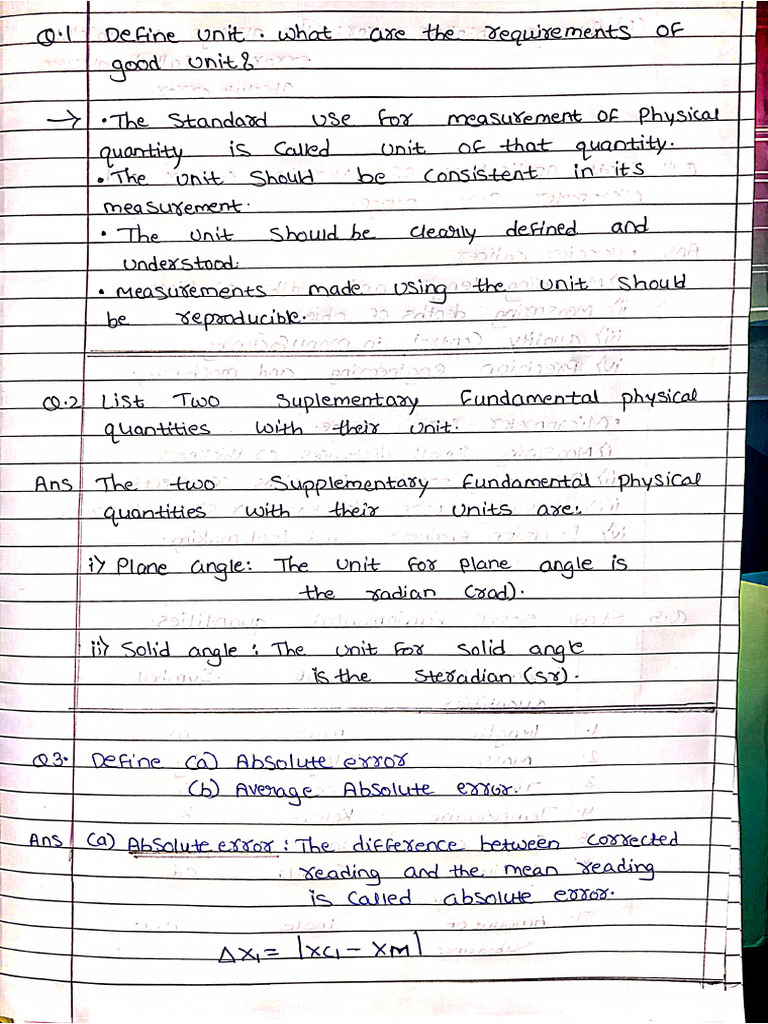 Q.1 Define unit. what are the requirements of
good unit?
→ • The Standard use for measurement of Physical
quantity is called unit of that quantity.
• The unit should be consistent in its
measurement.
• The unit should be clearly defined and
understood.
• Measurements made using the unit should
be reproducible.
Q.2 List Two Suplementary Fundamental physical
quantities with their unit.
Ans The two Supplementary Fundamental physical
quantities with their units are:
i) Plane angle: The unit for plane angle is
the radian (rad).
ii) Solid angle : The unit for solid angle
is the steradian (sr).
Q3. Define (a) Absolute error
(b) Average Absolute error.
Ans (a) Absolute error : The difference between corrected
reading and the mean reading
is called absolute error.
ΔX₁ = |XC₁ - XM|